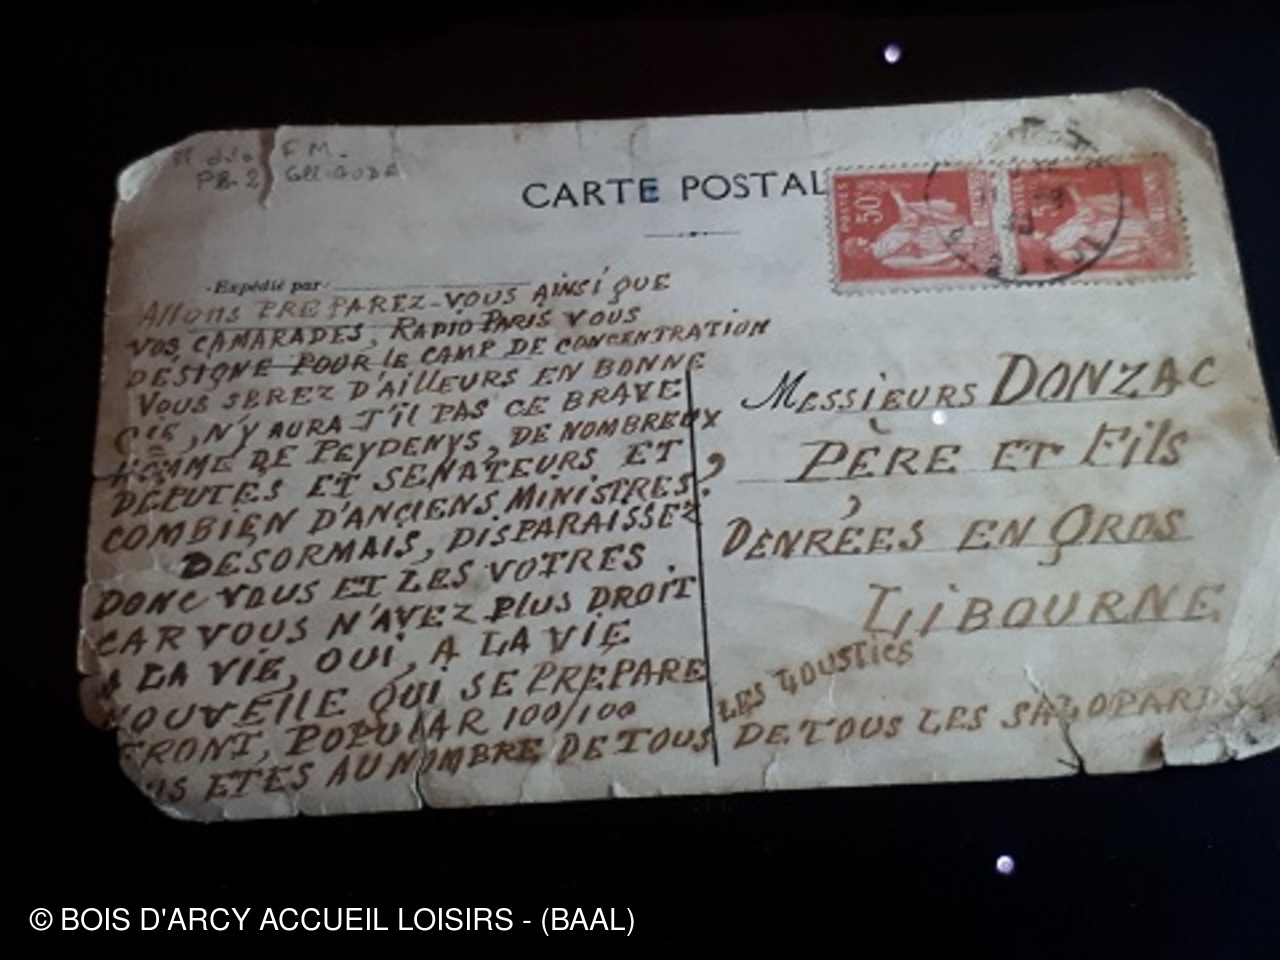 CARTE POSTAL
50c
POSTES
-Expédié par-
Allons PREPAREZ-VOUS AINSI QUE
VOS CAMARADES, RADIO PARIS VOUS
DÉSIGNE POUR LE CAMP DE CONCENTRATION
VOUS SEREZ D'AILLEURS EN BONNE
Cie, N'Y AURA T'il PAS CE BRAVE
HOMME DE PEYDENYS, DE NOMBREUX
DEPUTES ET SENATEURS ET
COMBIEN D'ANCIENS MINISTRES?
DESORMAIS, DISPARAISSEZ
DONC VOUS ET LES VOTRES.
CAR VOUS N'AVEZ PLUS DROIT
A LA VIE, OUI, A LA VIE
NOUVElle QUI SE PREPARE
FRONT, POPULAR 100/100
ETES AU NOMBRE DE TOUS
LES
DE TOUS LES SALOPARDS
MESSIEURS DONZAC
PÈRE ET Fils
DENRÉES EN GROS
LIBOURNE
© BOIS D'ARCY ACCUEIL LOISIRS - (BAAL)